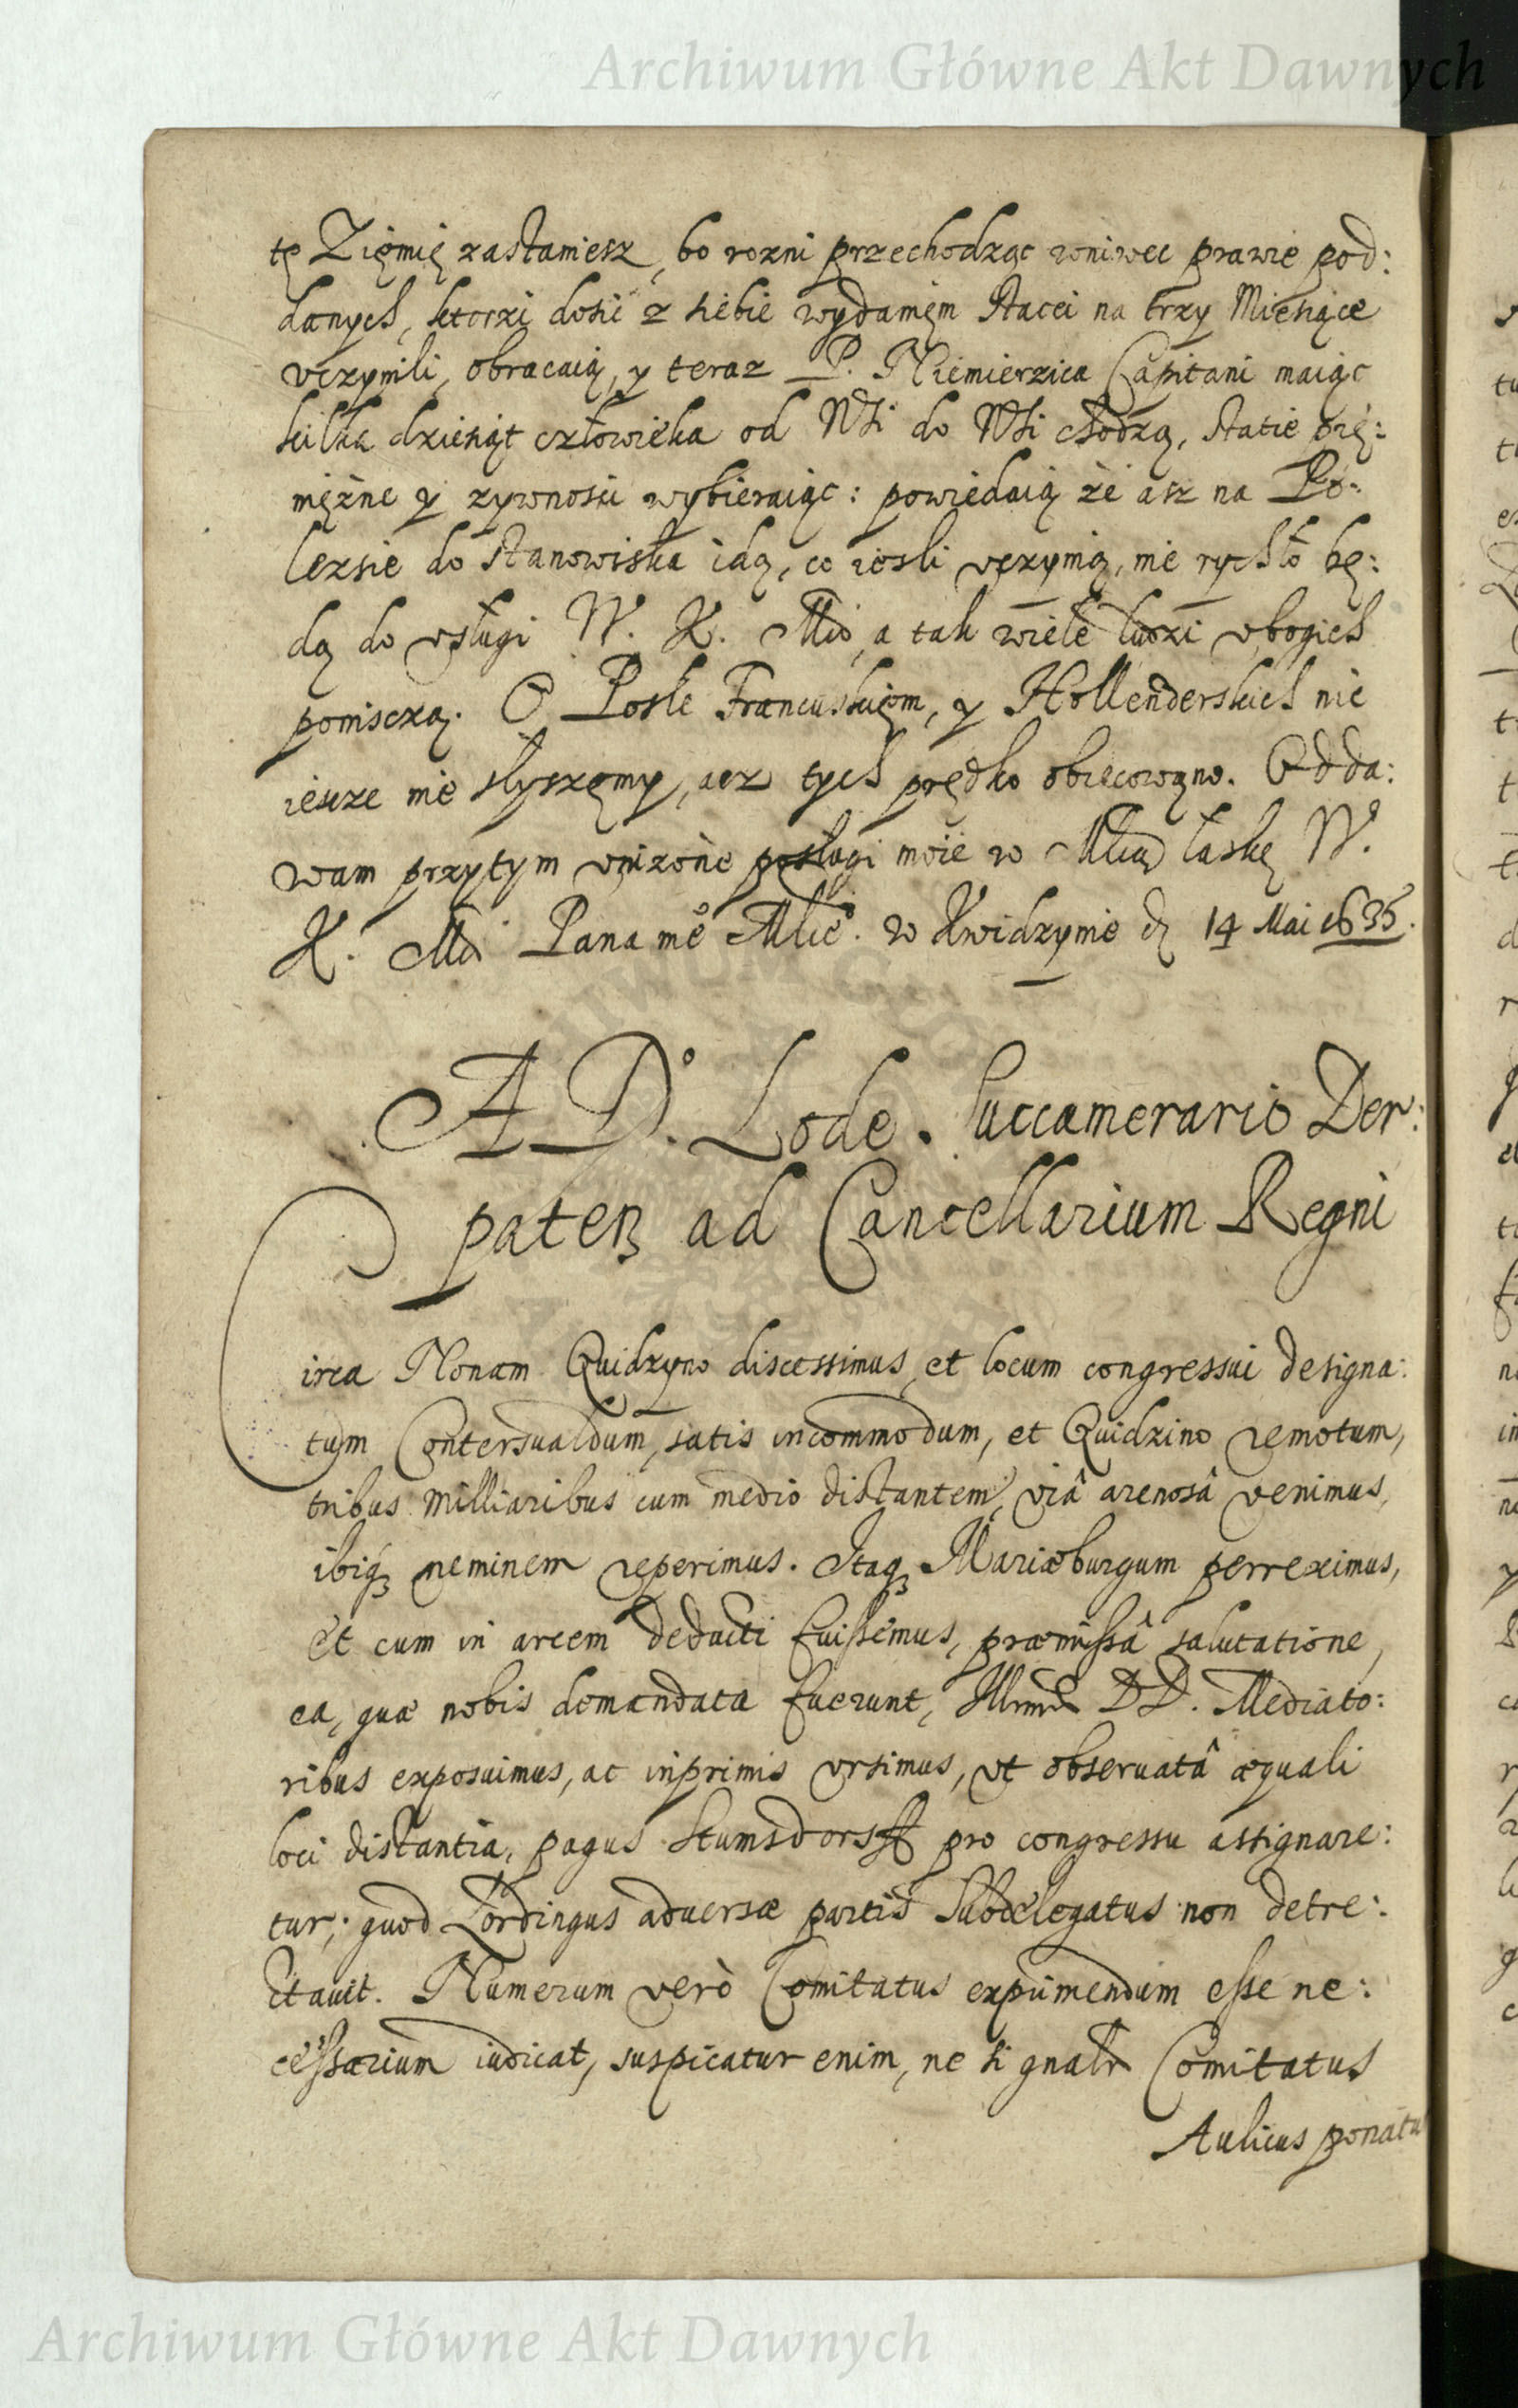 Archiwum Główne Akt Dawnych
tę Ziemię zastaniesz, bo rozni przechodząc wniwec prawie pod:
danych, ktorzi dosić z siebie wydaniem Stacei na trzy Miesiące
vczynili, obracaią, y teraz P. Niemierzica Capitani maiąc
kilka dziesiąt człowieka od Wsi do Wsi chodzą, statie pię:
niężne y zywnosci wybieraiąc: powiedaią że asz na Po-
lezsie do stanowiska idą, co iesli vczynią, nie rychło bę:
dą do vsługi W. K. Mci, a tak wiele ludzi vbogich
pomisczą. O Posle Francuskięm, y Hollenderskich nic
iescze nie słyszęmy, acz tych prędko obiecowano. Odda:
wam przytym vnizone posługi moie w Mciwą łaskę W.
K. Mci Pana mę Mlię. w Kwidzynie d 14 Mai 1635.
A D. Lode. Succamerario Der:
paten ad Cancellarium Regni
Circa Nonam Quidzyno discessimus, et locum congressui designa:
tum Contersualdum, satis incommodum, et Quidzino remotum,
tribus milliaribus cum medio distantem, viâ arenosâ venimus,
ibiq neminem reperimus. Itaq Mariæburgum perreximus,
et cum in arcem deducti fuissemus, præmissâ salutatione,
ea, quæ nobis demandata fuerunt, Illmis DD. Mediato:
ribus exposuimus, ac inprimis vrsimus, vt obseruatâ æquali
loci distantia, pagus Stumsdorff pro congressu assignare:
tur; quod Lördingus aduersæ partis Subdelegatus non detre:
ctauit. Numerum verò Comitatus exprimendum esse ne:
cessarium iudicat, suspicatur enim, ne si gnalr Comitatus
Aulicus ponatu
Archiwum Główne Akt Dawnych